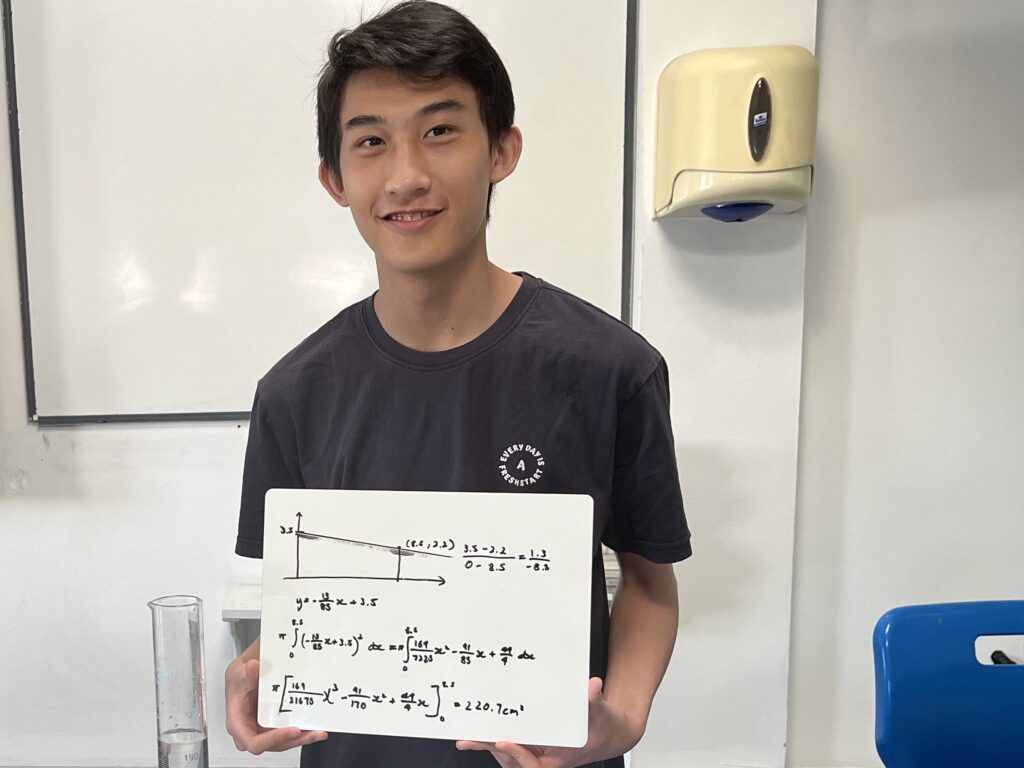 EVERY DAY IS
A
FRESHSTART
3.5
(8.5, 2.2)
3.5 - 2.2 / 0 - 8.5 = 1.3 / -8.5
y = -13/85 x + 3.5
π ∫₀^8.5 (-13/85 x + 3.5)² dx = π ∫₀^8.5 169/7225 x² - 91/85 x + 49/4 dx
π [169/21675 x³ - 91/170 x² + 49/4 x]₀^8.5 = 220.7cm³
190